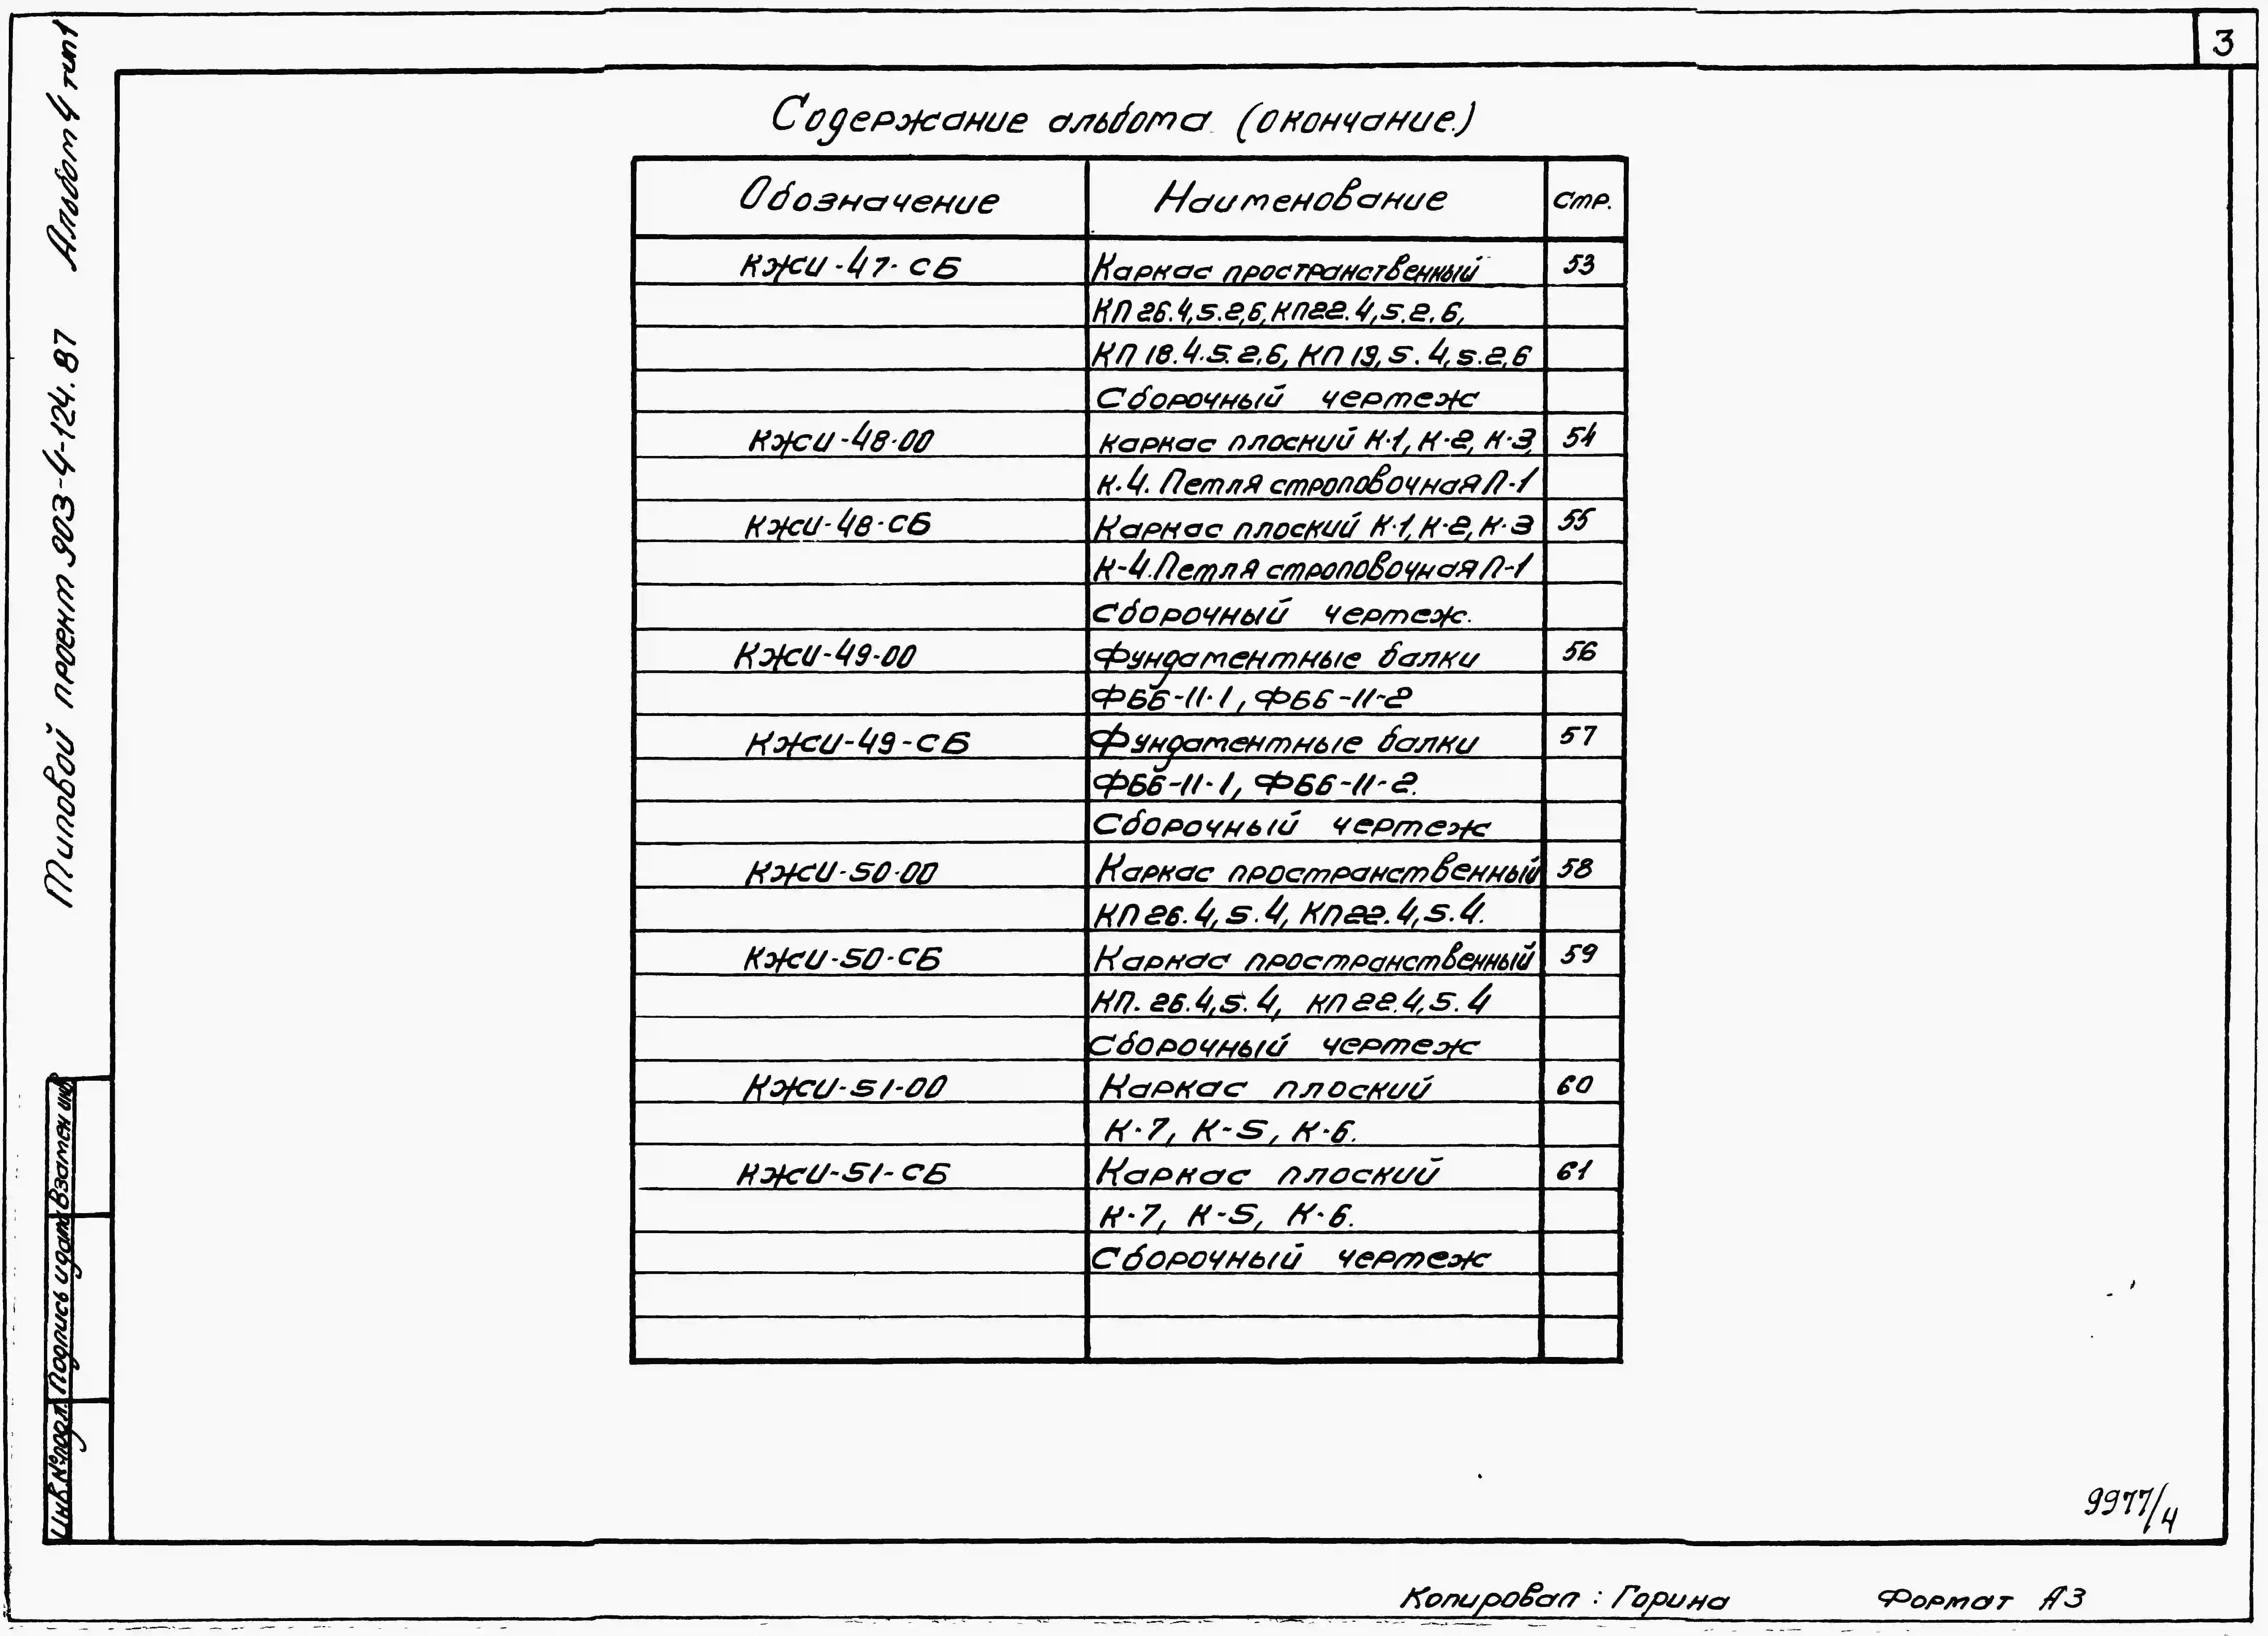 3
Альбом 4 тип 1
Типовой проект 903-4-124.87
Содержание альбома (окончание.)
Обозначение Наименование Стр.
КЖИ-47-СБ Каркас пространственный 53
КП 26.4,5.2,6, КП22.4,5.2,6,
КП 18.4.5.2,6, КП 19,5.4,5.2,6
Сборочный чертеж
КЖИ-48-00 Каркас плоский К-1, К-2, К-3, 54
К-4. Петля строповочная П-1
КЖИ-48-СБ Каркас плоский К-1, К-2, К-3 55
К-4. Петля строповочная П-1
Сборочный чертеж.
КЖИ-49-00 Фундаментные балки 56
ФБ6-11-1, ФБ6-11-2
КЖИ-49-СБ Фундаментные балки 57
ФБ6-11-1, ФБ6-11-2.
Сборочный чертеж
КЖИ-50-00 Каркас пространственный 58
КП26.4,5.4, КП22.4,5.4.
КЖИ-50-СБ Каркас пространственный 59
КП.26.4,5.4, КП22.4,5.4
Сборочный чертеж
КЖИ-51-00 Каркас плоский 60
К-7, К-5, К-6.
КЖИ-51-СБ Каркас плоский 61
К-7, К-5, К-6.
Сборочный чертеж
Взамен инв
Подпись и дата
Инв.№подл.
9977/4
Копировал: Горина Формат А3